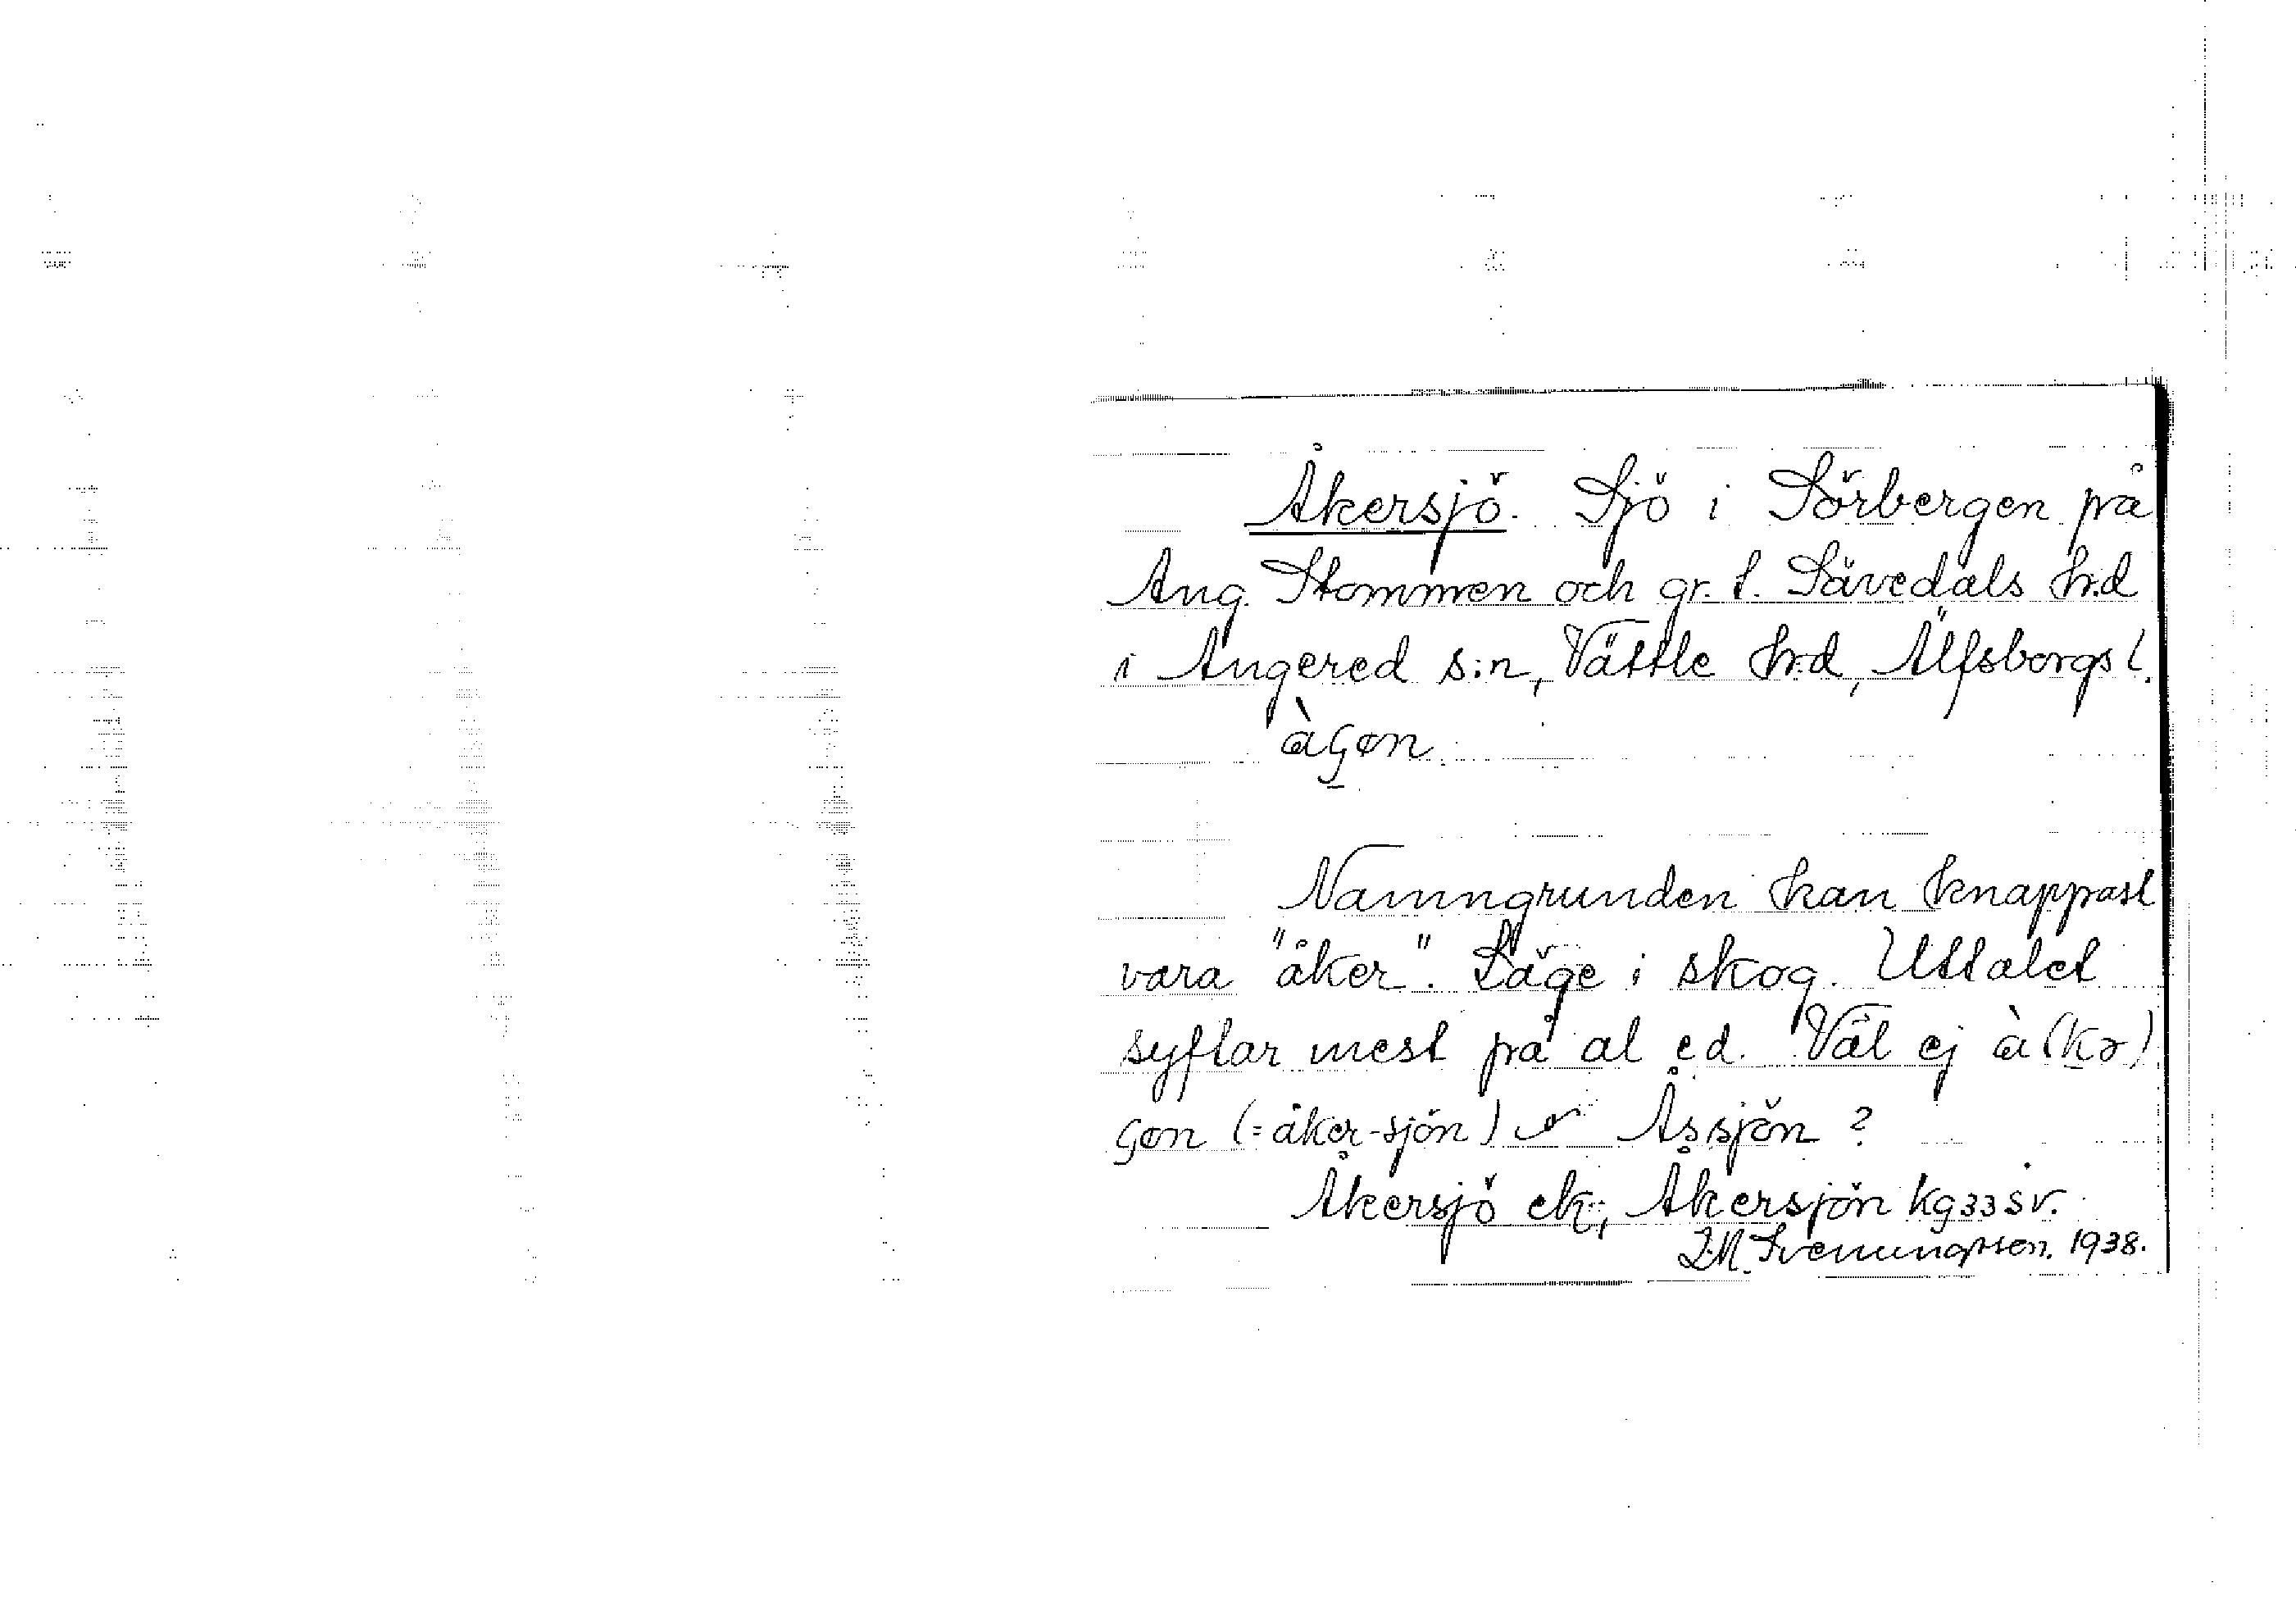 Åkersjö. Sjö i Sörbergen på
Ang. Stommen och gr. t. Sävedals h:d
i Angered s:n, Vättle h:d, Älfsborgs l.
àɕøn.
Namngrunden kan knappast
vara "åker". Läge i skog. Uttalet
syftar mest på al e.d. Väl ej à(kə)
ɕøn (= åker-sjön) Åssjön?
Åkersjö ek., Åkersjön kg 33 sv.
I.M. Svenungsson. 1938.